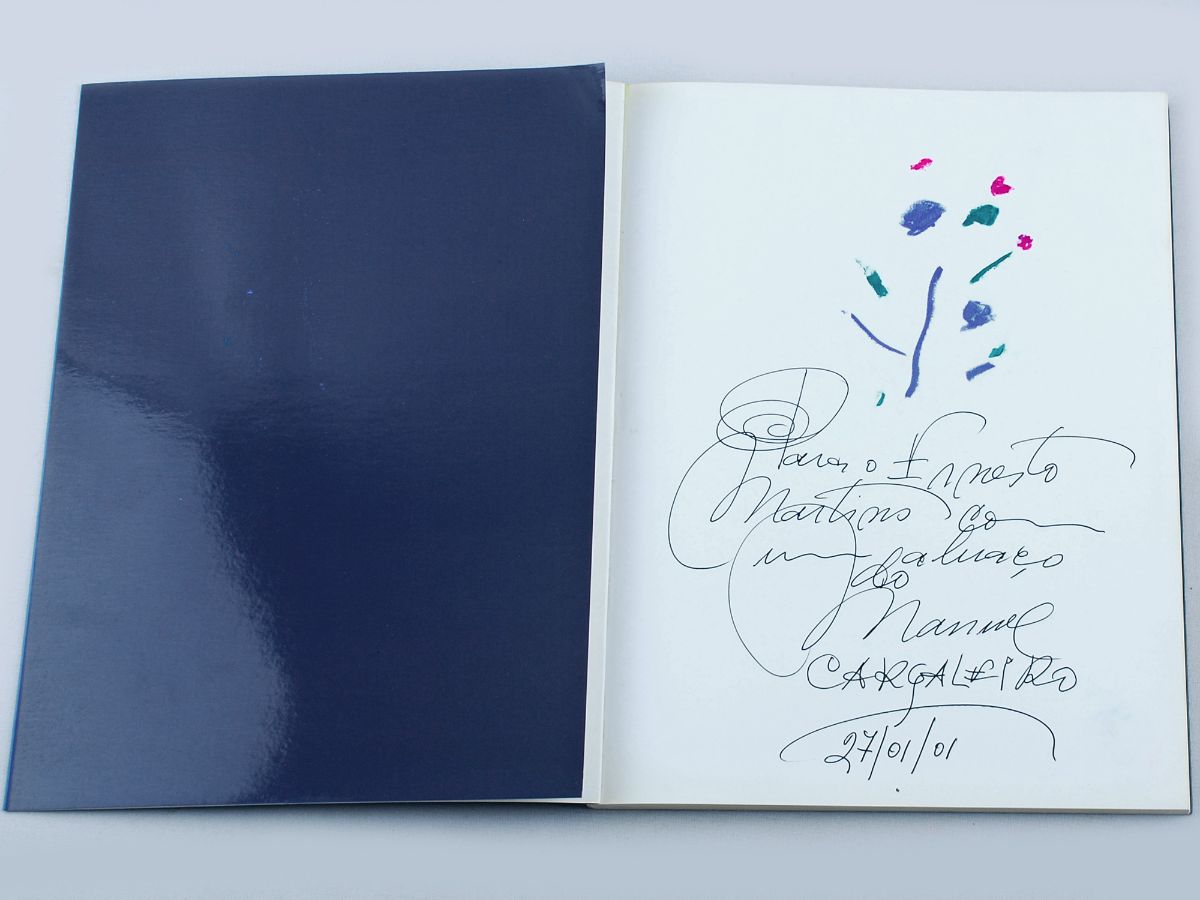 Para o Ernesto
Martins com
um abraço
do
Manuel
CARGALEIRO
27/01/01